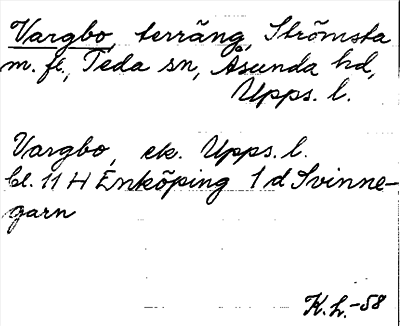 Vargbo, terräng, Strömsta
m. fl., Teda sn, Åsunda hd,
Upps. l.
Vargbo, ek. Upps. l.
bl. 11 H Enköping 1 d Svinne-
garn
K. L. -58